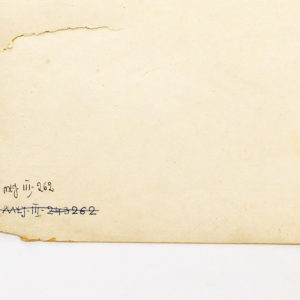 MŁJ III-262
MŁJ-III-243262